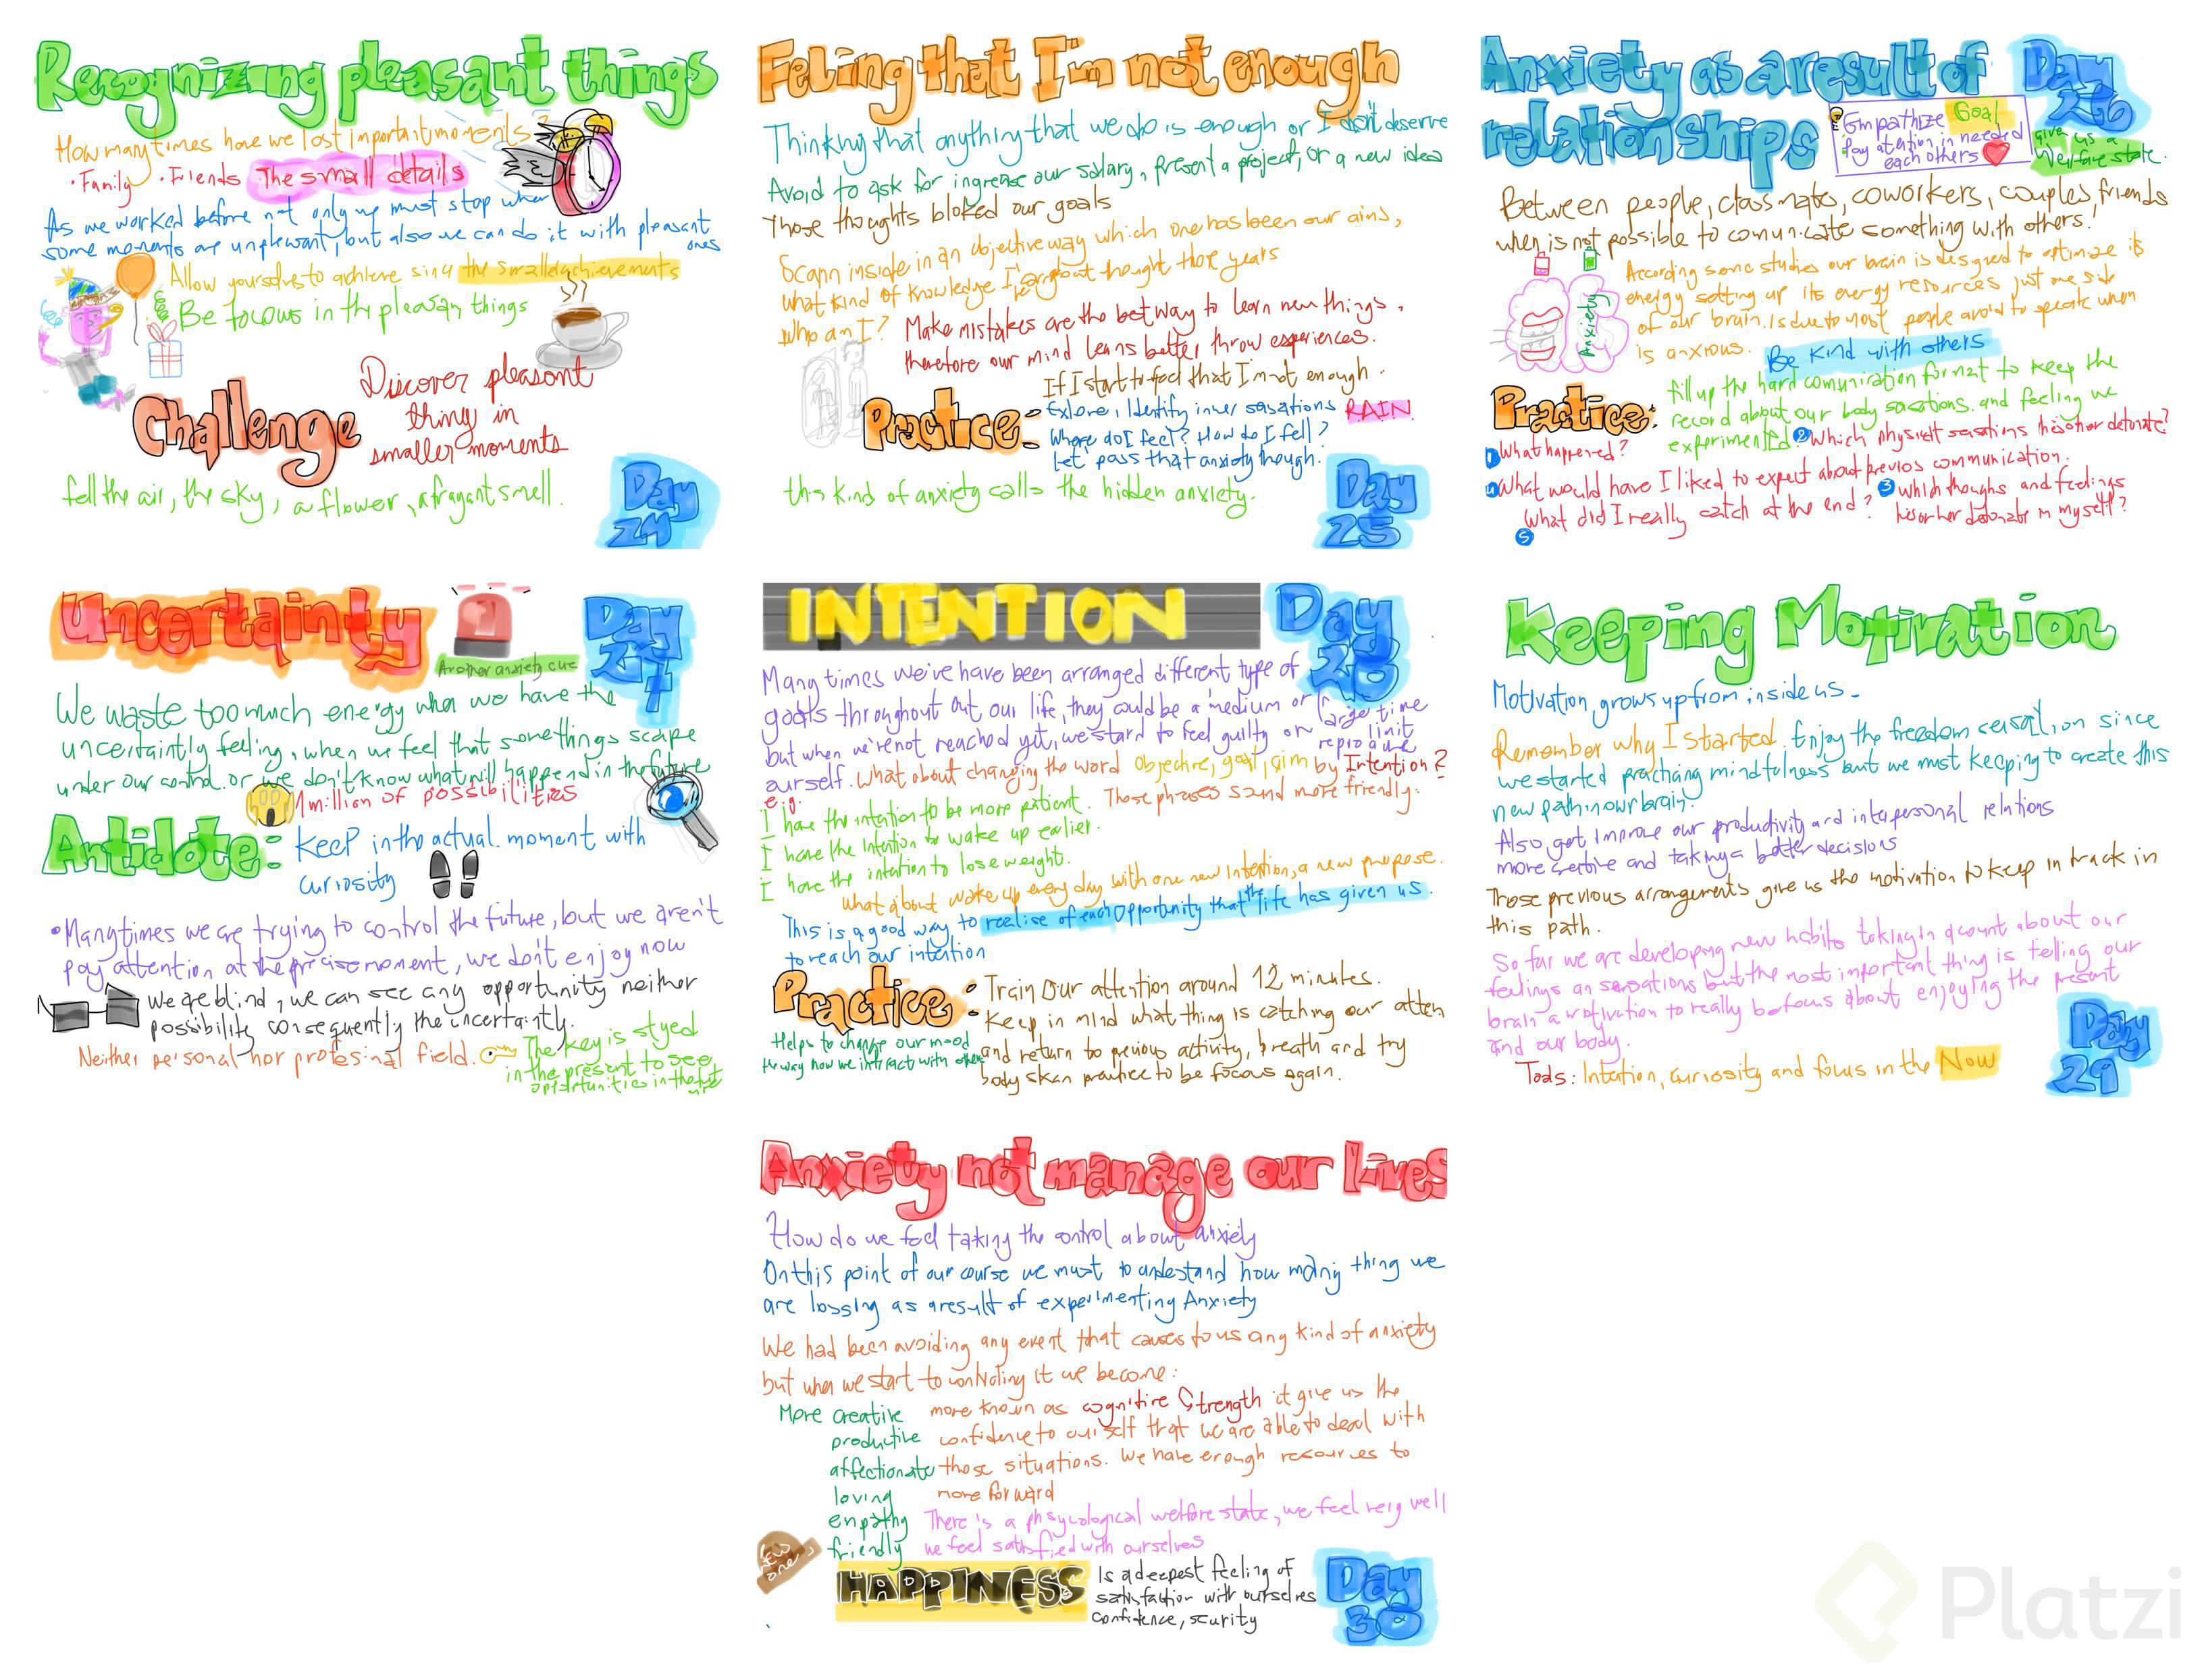 Recognizing pleasant things
How many times have we lost important moments?
• Family • Friends The small details
As we worked before not only we must stop when
some moments are unplewant, but also we can do it with pleasant
ones
Allow yourselves to achieve sing the smaller achievements
Be focous in the pleasan things
Challenge
Discover pleasant
thing in
smaller moments
fell the air, the sky, a flower, a fragant smell.
Day
24
Feling that I'm not enough
Thinking that anything that we do is enough or I don't deserve
Avoid to ask for increase our salary, present a project, or a new idea
Those thoughts bloked our goals
Scann inside in an objective way which one has been our aims,
what kind of knowledge I thought those years
Who am I?
Make mistakes are the bet way to learn new things,
therefore our mind leans better throw experiences.
If I start to feel that I'm not enough.
Practice:
Explore, Identify inner sasations RAIN
Where do I feel? How do I fell?
Let pass that anxiety though.
this kind of anxiety calls the hidden anxiety.
Day
25
Anxiety as a result of
relationships
Day
26
Goal
Empathize
Pay atention in needed
each others
give us a
Welfare state.
Between people, classmates, coworkers, couples, friends
when is not possible to comunicate something with others!
According some studies our brain is designed to optimize is
energy setting up its energy resources just one side
of our brain. Is due to most people avoid to speake when
is anxious.
Anxiety
Be Kind with others
Practice:
fill up the hard comunication format to keep the
record about our body sasations and feeling we
experimented
1 What happened?
2 Which physicall sensations his other detonate?
4 What would have I liked to expect about previos communication.
3 Which thoughs and feelings
his or her detonate in myself?
What did I really catch at the end?
5
Uncertainty
Another anxiety cue
Day
27
We waste too much energy when we have the
uncertaintly feeling, when we feel that somethings scape
under our control or we don't know what will happend in the future
1 million of possibilities
Antidote:
Keep in the actual moment with
curiosity
• Many times we are trying to control the future, but we aren't
pay attention at the precise moment, we don't enjoy now
We are blind, we can see any opportunity neither
possibility consequently the incertaintly.
Neither personal nor profesinal field.
The key is styed
in the present to see
opportunities in the future
INTENTION
Day
28
Many times we've have been arranged different type of
goals throughout out our life, they could be a medium or large time
but when we're not reached yet, we stard to feel guilty or limit
reproduce
ourself. What about changing the word objective, goal, aim by Intention?
e.g.
Those phrases sound more friendly:
I have the intention to be more patient.
I have the intention to wake up earlier.
I have the intention to lose weight.
What about wake up every day with one new intention, a new purpose.
This is a good way to realise of each opportunity that the life has given us
to reach our intention
Practice:
Helps to change our mood
the way how we interact with others
Train our attention around 12 minutes.
Keep in mind what thing is catching our atten
and return to previous activity, breath and try
body skan practice to be focous again.
Keeping Motivation
Motivation grows up from inside us.
Remember why I started. Enjoy the freedom sensation since
we started practicing mindfulness but we must keeping to create this
new path in our brain.
Also got improve our productivity and interpersonal relations
more sertive and taking a better decisions
Those previous arrangements give us the motivation to keep in track in
this path.
So far we are developing new habits taking in account about our
feelings an sensations but the most important thing is telling our
brain a motivation to really be focus about enjoying the present
and our body.
Tools: Intention, curiosity and focus in the Now
Day
29
Anxiety not manage our lives
How do we feel taking the control about anxiety
On this point of our course we must to undestand how many thing we
are lossing as a result of experimenting Anxiety
We had been avoiding any event that causes to us any kind of anxiety
but when we start to controling it we become:
More creative
productive
affectionate
loving
enpathy
friendly
more known as cognitive Strength it give us the
confidence to ourself that we are able to deal with
those situations. We have enough resources to
more forward
There is a phsycological welfare state, we feel very well
we feel satisfied with ourselves
HAPPINESS
Is a deepest feeling of
satisfaction with ourselves
confidence, scurity
Day
30
Platzi